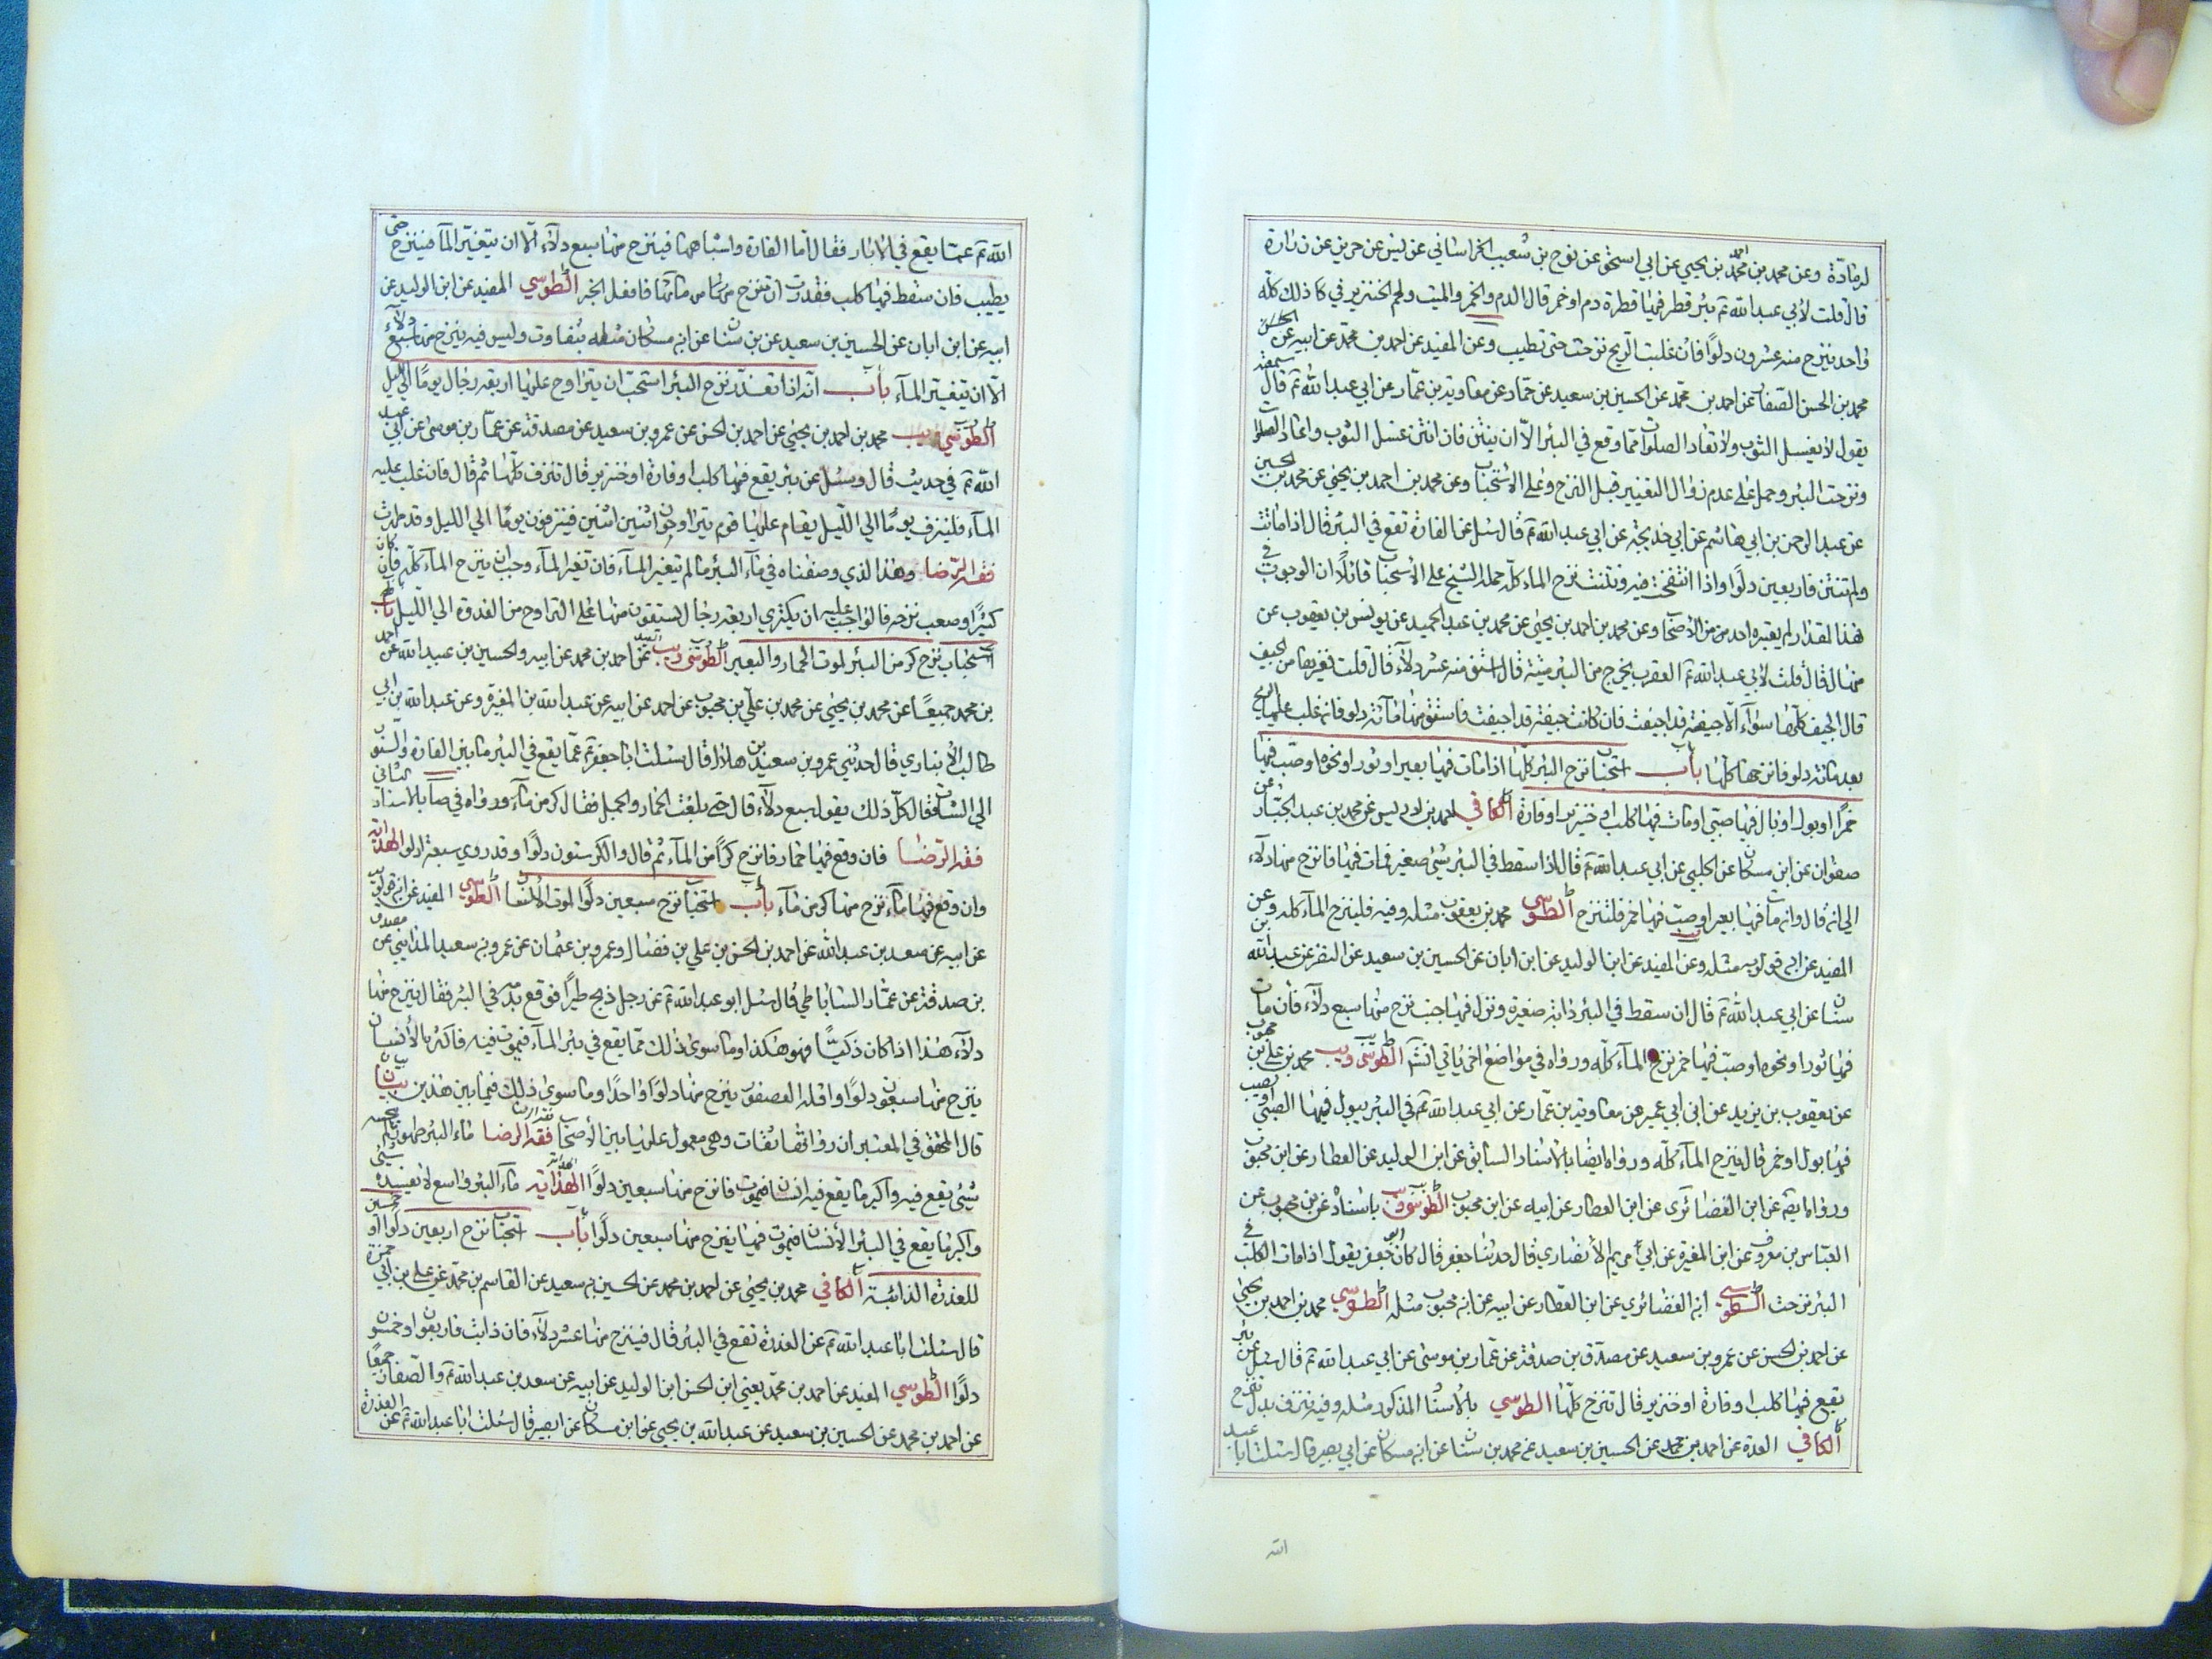 لزرارة وعن محمد بن احمد بن يحيي عن ابي اسحق عن نوح بن شعيب الخراساني عن يس عن حريز عن زرارة
قال قلت لأبي عبد الله ع بئر قطر فيها قطرة دم او خمر قال الدم والخمر والميت ولحم الخنزير في كا ذلك كله
واحد ينزح منه عشرون دلوًا فان غلبت الريح نزحت حتى تطيب وعن المفيد عن احمد بن محمد عن ابيه عن
محمد بن الحسن الصفار عن احمد بن محمد عن الحسين بن سعيد عن حماد عن معاوية بن عمار عن ابي عبد الله ع قال سمعته
يقول لا يغسل الثوب ولا تعاد الصلوة مما وقع في البئر الا ان ينتن فان انتن غسل الثوب واعاد الصلوة
ونزحت البئر وحمل على عدم زوال التغيير قبل النزح وعلى الاستحباب وعن محمد بن احمد بن يحيى عن محمد بن الحسين
عن عبد الرحمن بن ابي هاشم عن ابي خديجة عن ابي عبد الله ع قال سئل عن الفارة تقع في البئر قال اذا ماتت
ولم تنتن فاربعين دلوًا واذا انتفخت فيه ونتنت نزح الماء كله حمله الشيخ على الاستحباب قائلًا ان الوجوب في
هذا المقدار لم يعتبره احد من الأصحاب وعن محمد بن احمد بن يحيى عن محمد بن عبد الحميد عن يونس بن يعقوب عن
منهال قال قلت لأبي عبد الله ع العقرب يخرج من البئر ميتة قال استق منه عشر دلاء قال قلت فغيرها من الجيف
قال الجيف كلها سواء الا جيفة قد اجيفت فان كانت جيفة قد اجيفت فاستق منها مائة دلو فان غلب عليها الريح
بعد مائة دلو فانزحها كلها باب استحباب نزح البئر كلها اذا مات فيها بعير او ثور او نحوه او صب فيها
خمرًا او بول او بال فيها صبي او مات فيها كلب او خنزير او فارة الكافي احمد بن ادريس عن محمد بن عبد الجبار عن
صفوان عن ابن مسكان عن الحلبي عن ابي عبد الله ع قال اذا سقط في البئر شيء صغير فمات فيها فانزح منها دلاء
الى ان قال وان مات فيها بعير او صب فيها خمر فلتنزح الطوسي محمد بن يعقوب مثله وفيه فلينزح الماء كله وعن
المفيد عن ابن قولويه مثله وعن المفيد عن ابن الوليد عن ابن ابان عن الحسين بن سعيد عن النضر عن عبد الله بن
سنان عن ابي عبد الله ع قال ان سقط في البئر دابة صغيرة ونزل فيها جنب نزح منها سبع دلاء فان مات
فيها ثور او نحوه او صب فيها خمر نزح الماء كله ورواه في مواضع اخر ياتي انشا الطوسي ويب محمد بن علي بن محبوب
عن يعقوب بن يزيد عن ابن ابي عمير عن معاوية بن عمار عن ابي عبد الله ع في البئر يبول فيها الصبي او يصب
فيها بول او خمر قال ينزح الماء كله ورواه ايضا بالاسناد السابق عن ابن الوليد عن العطار عن ابن محبوب
ورواه ايضًا عن ابن الغضائري عن ابن العطار عن ابيه عن ابن محبوب الطوسي ويب باسناده عن بن محبوب عن
العباس بن معروف عن ابن المغيرة عن ابي مريم الأنصاري قال حدثنا جعفر قال كان ابو جعفر يقول اذا مات الكلب في
البئر نزحت الطوسي ابن الغضائري عن ابن العطار عن ابيه عن ابن محبوب مثله الطوسي محمد بن احمد بن يحيى
عن احمد بن الحسن عن عمرو بن سعيد عن مصدق بن صدقة عن عمار بن موسى عن ابي عبد الله ع قال سئل عن بئر
يقع فيها كلب او فارة او خنزير قال تنزح كلها الطوسي بالاسناد المذكور مثله وفيه تنزف بدل تنزح
الكافي العدة عن احمد بن محمد عن الحسين بن سعيد عن محمد بن سنان عن ابن مسكان عن ابي بصير قال سئلت ابا عبد
الله
الله ع عما يقع في الابار فقال اما الفارة واشباهها فينزح منها سبع دلاء الا ان يتغير الماء فينزح حتى
يطيب فان سقط فيها كلب فقدرت ان تنزح ماءها فافعل الخبر الطوسي المفيد عن ابن الوليد عن
ابيه عن ابن ابان عن الحسين بن سعيد عن بن سنان عن ابن مسكان مثله بتفاوت وليس فيه ينزح منها سبع دلاء
الا ان يتغير الماء باب انه اذا تعذر نزح البئر استحب ان يتراوح عليها اربعة رجال يومًا الى الليل
الطوسي ويب محمد بن احمد بن يحيى عن احمد بن الحسن عن عمرو بن سعيد عن مصدقة عن عمار بن موسى عن ابي عبد
الله ع في حديث قال وسئل عن بئر يقع فيها كلب او فارة او خنزير قال تنزف كلها ثم قال فان غلب عليه
الماء فلينزف يومًا الى الليل يقام عليها قوم يتراوحون اثنين اثنين فينزفون يومًا الى الليل وقد طهرت
فقه الرضا وهذا الذي وصفناه في ماء البئر ما لم يتغير الماء فان تغير الماء وجب ان ينزح الماء كله فان كان
كثيرًا وصعب نزحه فالواجب عليه ان يكتري اربعة رجال يستقون منها على التراوح من الغدوة الى الليل باب
استحباب نزح كر من البئر لموت الحمار والبعير الطوسي ويب المفيد عن احمد بن محمد عن ابيه والحسين بن عبيد الله عن احمد
بن محمد جميعًا عن محمد بن يحيى عن محمد بن علي بن محبوب عن احمد عن ابيه عن عبد الله بن المغيرة وعن عبد الله بن ابي
طالب الأنباري قال حدثني عمرو بن سعيد بن هلال قال سئلت ابا جعفر ع عما يقع في البئر ما بين الفارة والسنور
الى الشاة فقال كل ذلك يقول سبع دلاء قال حتى بلغت الحمار والجمل فقال كر من ماء ورواه في صا بالاسناد الثاني
فقه الرضا فان وقع فيها حمار فانزح كرًا من الماء ثم قال والكر ستون دلوًا وقد روي سبعة ادلو الهداية
وان وقع فيها حمار نزح منها كر من ماء باب استحباب نزح سبعين دلوًا لموت الأنسان الطوسي المفيد عن ابن قولويه
عن ابيه عن سعد بن عبد الله عن احمد بن الحسن بن علي بن فضال وعمرو بن عثمان عن عمرو بن سعيد المدايني عن مصدق
بن صدقة عن عمار الساباطي قال سئل ابو عبد الله ع عن رجل ذبح طيرًا فوقع بدمه في البئر فقال ينزح منها
دلاء هذا اذا كان ذكيًا فهو هكذا وما سوى ذلك مما يقع في بئر الماء فيموت فيه فاكثره الأنسان
ينزح منها سبعون دلوًا واقله العصفور ينزح منها دلوًا واحدًا وما سوى ذلك فيما بين هذين بيان
قال المحقق في المعتبر ان رواتها ثقات وهي معمول عليها بين الأصحاب فقه الرضا ماء البئر طهور ما لم ينجسه
شيء يقع فيه واكبر ما يقع فيه انسان فيموت فانزح منها سبعين دلوًا الهداية ماء البئر واسع لا يفسده شيء
واكبر ما يقع في البئر الأنسان فيموت فيها ينزح منها سبعين دلوًا باب استحباب نزح اربعين دلوًا او خمسين
للعذرة الذائبة الكافي محمد بن يحيى عن احمد بن محمد عن الحسين بن سعيد عن القاسم بن محمد عن علي بن ابي حمزة
قال سئلت ابا عبد الله ع عن العذرة تقع في البئر قال فينزح منها عشر دلاء فان ذابت فاربعون او خمسون
دلوًا الطوسي المفيد عن احمد بن محمد يعني ابن الحسن ابن الوليد عن ابيه عن سعد بن عبد الله ع والصفار جميعًا
عن احمد بن محمد عن الحسين بن سعيد عن عبد الله بن يحيى عن ابن مسكان عن ابي بصير قال سئلت ابا عبد الله ع عن العذرة